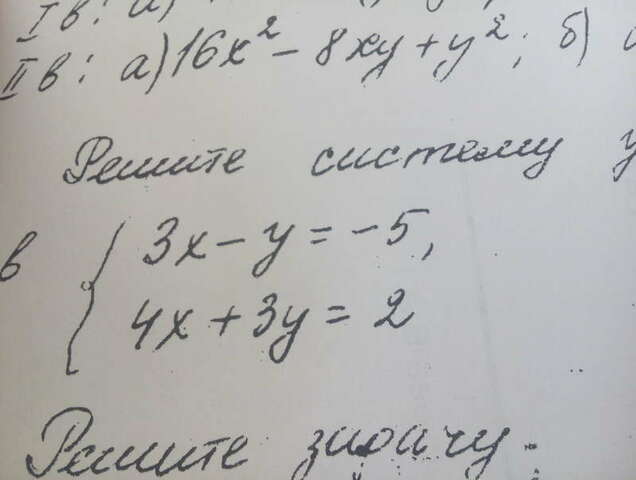 I в: а)
II в: а) 16x² - 8xy + y²; б)
Решите систему у
в { 3x - y = -5,
4x + 3y = 2
Решите задачу.